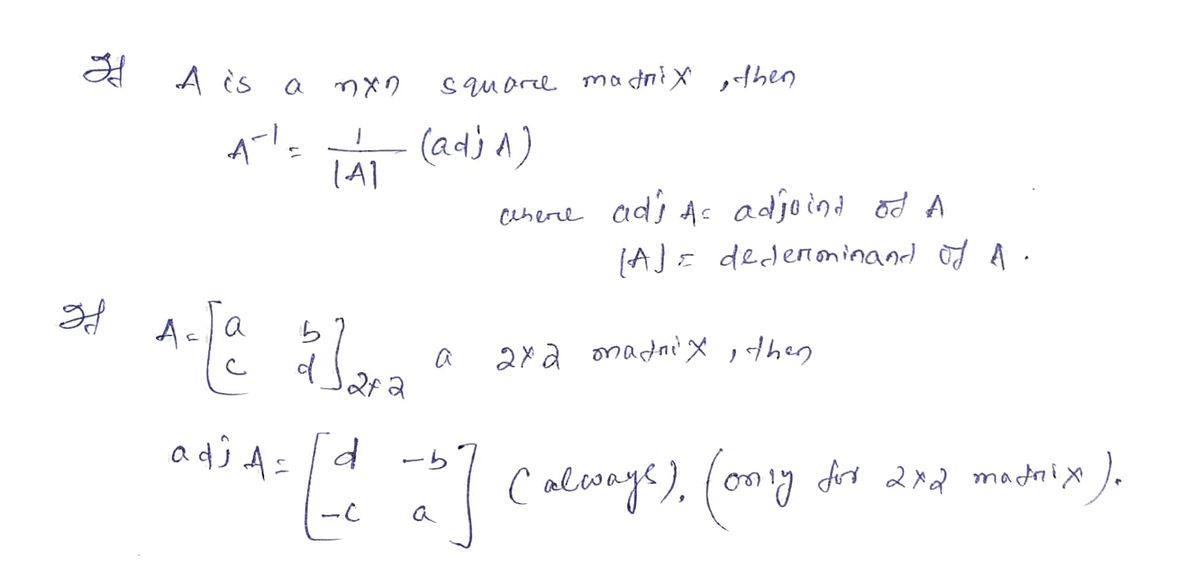 If A is a n×n square matrix, then
A⁻¹ = 1/|A| (adj A)
where adj A = adjoint of A
|A| = determinant of A.
If A = [a b; c d]₂ₓ₂ a 2×2 matrix, then
adj A = [d -b; -c a] (always). (only for 2×2 matrix).